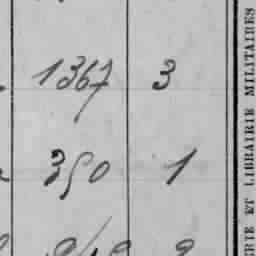 1367 3
350 1
ERIE ET LIBRAIRIE MILITAIRES